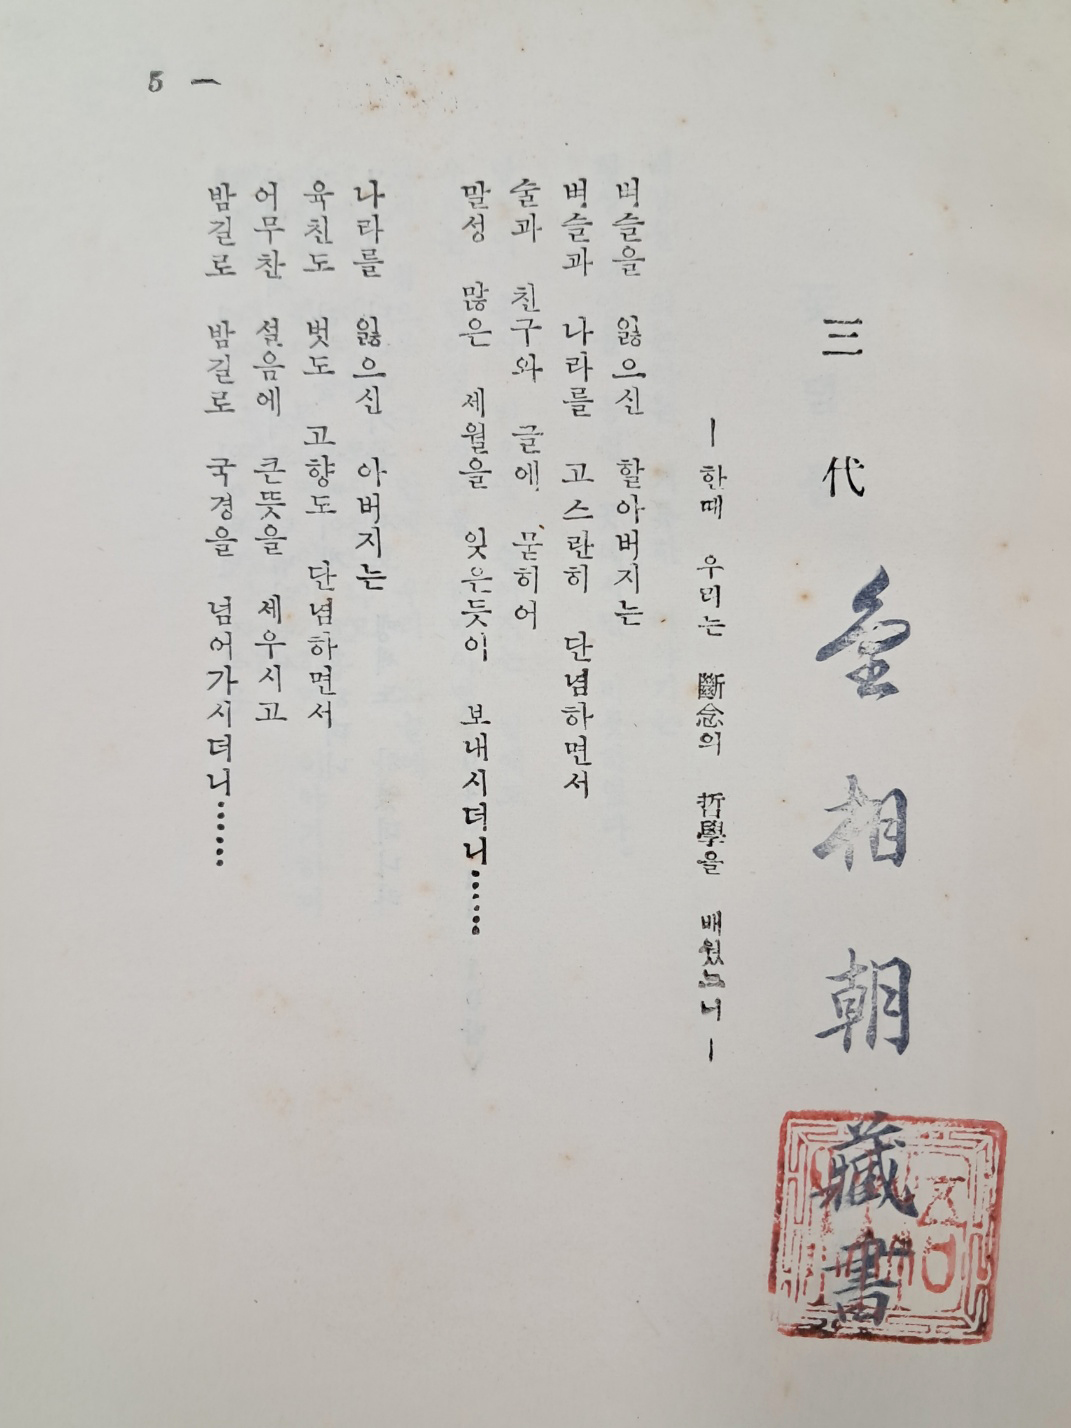 三代
金相朝藏書
—한때 우리는 斷念의 哲學을 배웠느니—
벼슬을 잃으신 할아버지는
벼슬과 나라를 고스란히 단념하면서
술과 친구와 글에 묻히어
말성 많은 세월을 잊은듯이 보내시더니……
나라를 잃으신 아버지는
육친도 벗도 고향도 단념하면서
어무찬 설음에 큰뜻을 세우시고
밤길로 밤길로 국경을 넘어가시더니……
5 —